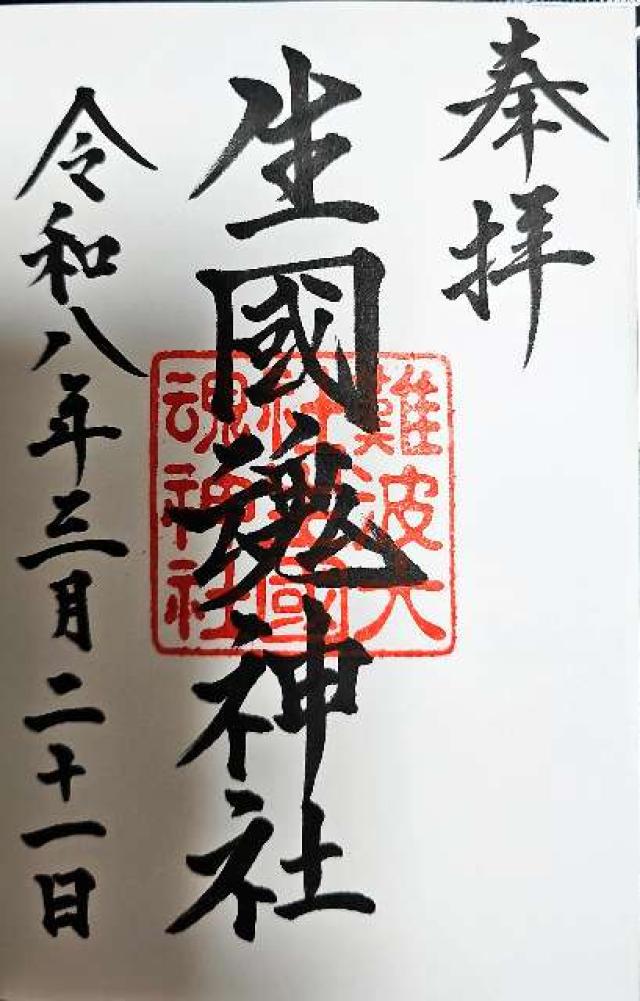 奉拝
生國魂神社
難波大
社生國
魂神社
令和八年三月二十一日